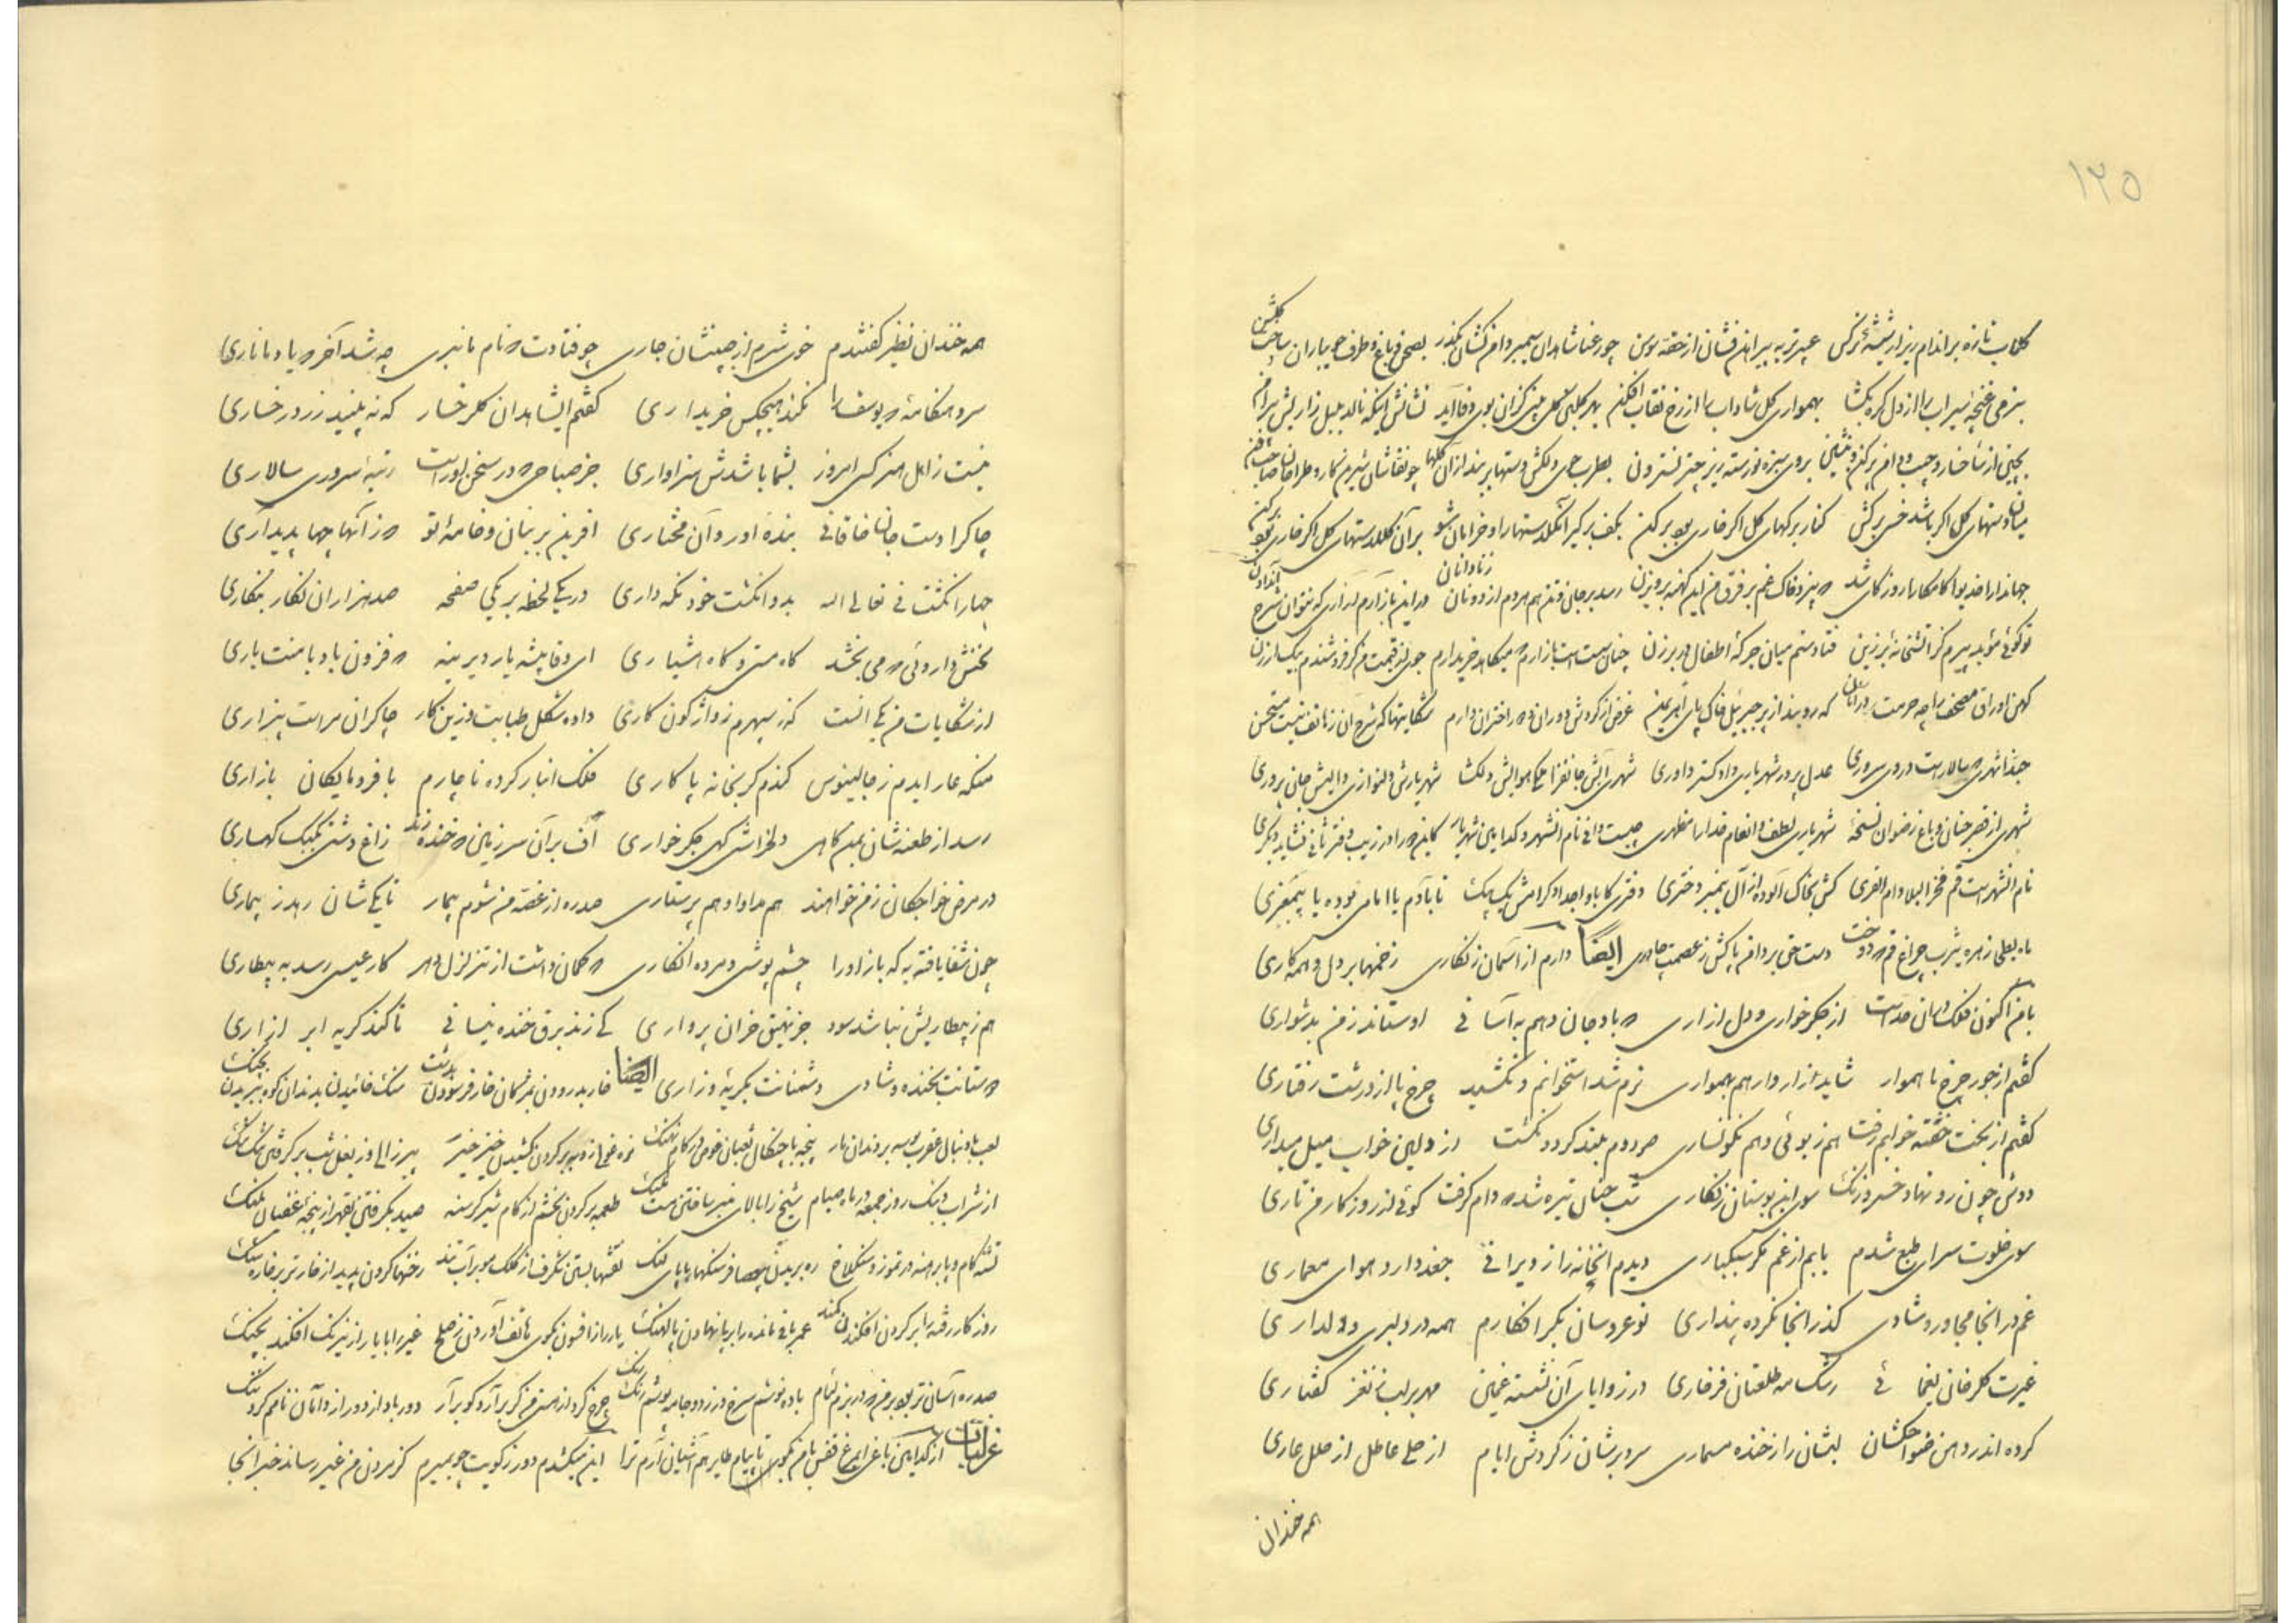 ۱۲۵
گلاب تازه بر اندام ریز از شیشهٔ نرگس عبیر تر به پیراهن فشان از حقه سوسن چو رعنا شاهدان سیمبر دامن کشان بگذر بصحن باغ و طرف جویباران ساحت گلشن
بنرمی غنچهٔ سیراب را از دل گره بگشا بهمواری گل شاداب را از رخ نقاب افکن بهر گلبن گلی بینی کزان بوی وفا آید نشانش اینکه نالد بلبل زارش به پیرامن
بچین از شاخسار و جیب و دامن پر کن و بنشین بروی سبزه نورسته زیر چتر نسترون بطرحی دلکش دستها بربند از آن گلها چو نقاشان شیرین کار و طراحان صاحب فن
میان دستهای گل اگر باشد خسی برکش کنار برگهای گل اگر خاری بود برکن بکف برگیر آن گلدستها را و خرامان شو بر آن گلدستهای گل اگر خاری بود برکن
جهاندارا خدیوا کامکارا روزگاری شد که بیزد خاک غم بر فرق من این کهنه پرویزن رسد بر جان و تن هم مردم از دونان و نادانان در این بازارم آزاری که نتوان شرح آن دادن
تو گوئی موبد پیرم کز آتشخانهٔ برزین فتادستم میان جرگهٔ اطفال در برزن چنان پست است بازارم که میکاهد خریدارم جوی از قیمت من گر فروشندم بیک ارزن
کهن اوراق مصحف را چه حرمت در آن که روبند از پر جبریل خاک پای اهریمن غرض از گردش دوران وز اختران دارم شکایتها که شرح آن ز مانند نیست مستحسن
حبذا شهری که سالار است در وی سروری عدل پرور شهریاری دادگستر داوری شهری آبش جانفزا ملکی هوایش دلگشا شهریارش دلنوازی والیش جان پروری
شهری از قصر جنان و باغ رضوان نسخهٔ شهریاری لطف و انعام خدا را مظهری چیست دانی نام آن شهر و کدامین شهریار کاین دو را در زیب و فر ثانی نباشد دیگری
نام آن شهر است قم فخر البلاد ام القری کش بخاک آسوده از آل پیمبر دختری دختری کابا و اجداد کرامش یک بیک تا بآدم یا امامی بوده یا پیغمبری
ماه بطحی زهره یثرب چراغ قم که دوخت دست حق بر دامن پاکش ز عصمت چادری ایضا دارم از آسمان زنگاری زخمها بر دل و همه کاری
با من اکنون فلک در آن حد است از جگر خواری و دل آزاری که باو جان دهم به آسانی او ستاند ز من بدشواری
گفتم از جور چرخ ناهموار شاید ار وا رهم بهمواری نرم شد استخوانم و نکشید چرخ پا از درشت رفتاری
گفتم از بخت خفته خوابم رفت هم زبونی و هم نگونساری صور دوم بلند کرد و نگشت از دلین خواب میل بیداری
دوش چون رو نهاد خسرو زنگ سوی این بوستان زنگاری شب چنان تیره شد که وام گرفت گوئی از روزگار من تاری
سوی خلوت سرای طبع شدم یابم از غم مگر سبکباری دیدم آنخانه را ز ویرانی جغد دارد هوای معماری
غم در آنجا مجاور و شادی گذر آنجا نکرده پنداری نو عروسان بکر افکارم همه در دلبری و دلداری
غیرت گلرخان یغمائی رشک مه طلعتان فرخاری در زوایای آن نشسته غمین مهر بر لب ز نغز گفتاری
کرده اندر دهن ضواحکشان لبشان را ز خنده مسماری سر بر شان ز گردش ایام از حلی عاطل از حلل عاری
همه خندان
همه خندان نظیر گفتندم خوش شرم از چنین شان جاری چو فتادت که نام ما نبری چه شد آخر که یاد ما ناری
سرد هنگامهٔ که یوسف را نکند هیچکس خریداری گفتم ایشاهدان گلرخسار که نه بینید زرد رخساری
نیست ز اهل هنر کسی امروز بشما باشدش سزاواری جز صباحی که در سخن او راست رتبهٔ سروری سالاری
چاکرا دست جان خاقانی بنده او را و آن مختاری آفرین بر بنان و خامهٔ تو که ز آنها چها پدید آری
چهار انگشت نی تعالی الله بدو انگشت خود نگهداری در یکی لحظه بر یکی صفحه صد هزاران نگار بنگاری
بخشش داروئی که می بخشد گاه مستی و گاه هشیاری ای وفا پیشه یار دیرینه که فزون باد با منت یاری
از شکایات من یکی اینست کز سپهرم ز واژگون کاری داده شغل طبابت و زین کار چاکران مراست بیزاری
منکه عار آیدم ز جالینوس کندم گر بخانه پاکاری فلک انباز کرده ناچارم با فرومایگان بازاری
رسد از طعنه شان بمن گاهی دلخراشی گهی جگر خواری اف بر آن سرزمین که خنده زند زاغ دشتی بکبک کهساری
در مرض خواجگان ز من خواهند هم مداوا و هم پرستاری صد ره از غصه من شوم بیمار تا یکی شان رهد ز بیماری
چون شفا یافته به که باز او را چشم پوشی و مرده انگاری که گمان داشت از تنزل دهر کار عیسی رسد به بیطاری
هم ز بیطاریش نباشد سود جز نهیق خران پرواری کی زند برق خنده نیسانی تا کند گریه ابر آزاری
دوستانت بخنده و شادی دشمنانت بگریه و زاری ایضا خار بدرودن بمژگان خاره فرسودن بدست سنگ خائیدن بدندان کوه ببریدن بچنگ
لعب با دنبال عقرب بوسه بر دندان مار پنجه با چنگال ثعبان غوص در کام نهنگ نره غولی از دو بر گردن کشیدن خیز خیز پیر زالی در بغل شب برگرفتن تنگ تنگ
از شراب و بنگ روز جمعه در ماه صیام شیخ را بالای منبر ساختن مست و ملنگ طعمه بر کردن بخشم از کام شیر گرسنه صید بگرفتن بقهر از پنجهٔ غضبان پلنگ
تشنه کام و پا برهنه در تموز و سنگلاخ ره بریدن بی عصا فرسنگها با پای لنگ نقشها بستن شگرف از کلک مو بر آب تند رخنها کردن پدید از خار تر بر خاره سنگ
روزگار رفته را بر گردن افکندن کمند عمر باقی مانده را بر پا نهادن پالهنگ یار را ز افسون بکوی هاتف آوردن بصلح غیر را با یار از نیرنگ افکندن بجنگ
صد ره آسان تر بود بر من که در بزم لئام باده نوشم سرخ و زرد و جامه پوشم رنگ رنگ چرخ گرد از هستی من گر بر آرد گو بر آر دور بادا دور از دامان نامم گرد ننگ
غزلیات از کدامین باغی ای مرغ قفس با من بگوی تا پیام طایر هم آشیان آرم ترا این میکشدم دور ز کویت چو بمیرم کز مردن من غیر رساند خبر آنجا